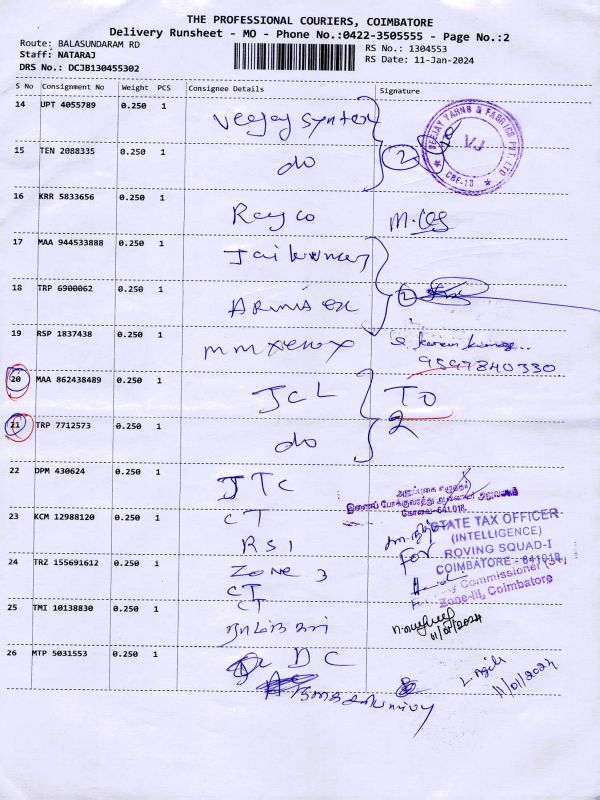 THE PROFESSIONAL COURIERS, COIMBATORE
Delivery Runsheet - MO - Phone No.:0422-3505555 - Page No.:2
Route: BALASUNDARAM RD
RS No.: 1304553
Staff: NATARAJ
RS Date: 11-Jan-2024
DRS No.: DCJB130455302
S No Consignment No Weight PCS Consignee Details Signature
14 UPT 4055789 0.250 1 Veejay Syntex
VEEJAY YARNS & FABRICS PVT. LTD
VJ
CBE-18
15 TEN 2088335 0.250 1 do 2
16 KRR 5833656 0.250 1 Rayco
17 MAA 944533888 0.250 1 Jaikumar
18 TRP 6900062 0.250 1 2
19 RSP 1837438 0.250 1 mm xerox
9597840330
20 MAA 862438489 0.250 1 JCL TO
21 TRP 7712573 0.250 1 do 2
22 DPM 430624 0.250 1 JTC
கோவை-641018.
23 KCM 12988120 0.250 1 CT
RSI
STATE TAX OFFICER
(INTELLIGENCE)
For ROVING SQUAD-I
COIMBATORE - 641018
24 TRZ 155691612 0.250 1 ZONE 3
CT
Commissioner (ST),
Zone-III, Coimbatore
25 TMI 10138830 0.250 1 CT
11/01/2024
26 MTP 5031553 0.250 1 DC
11/01/2024